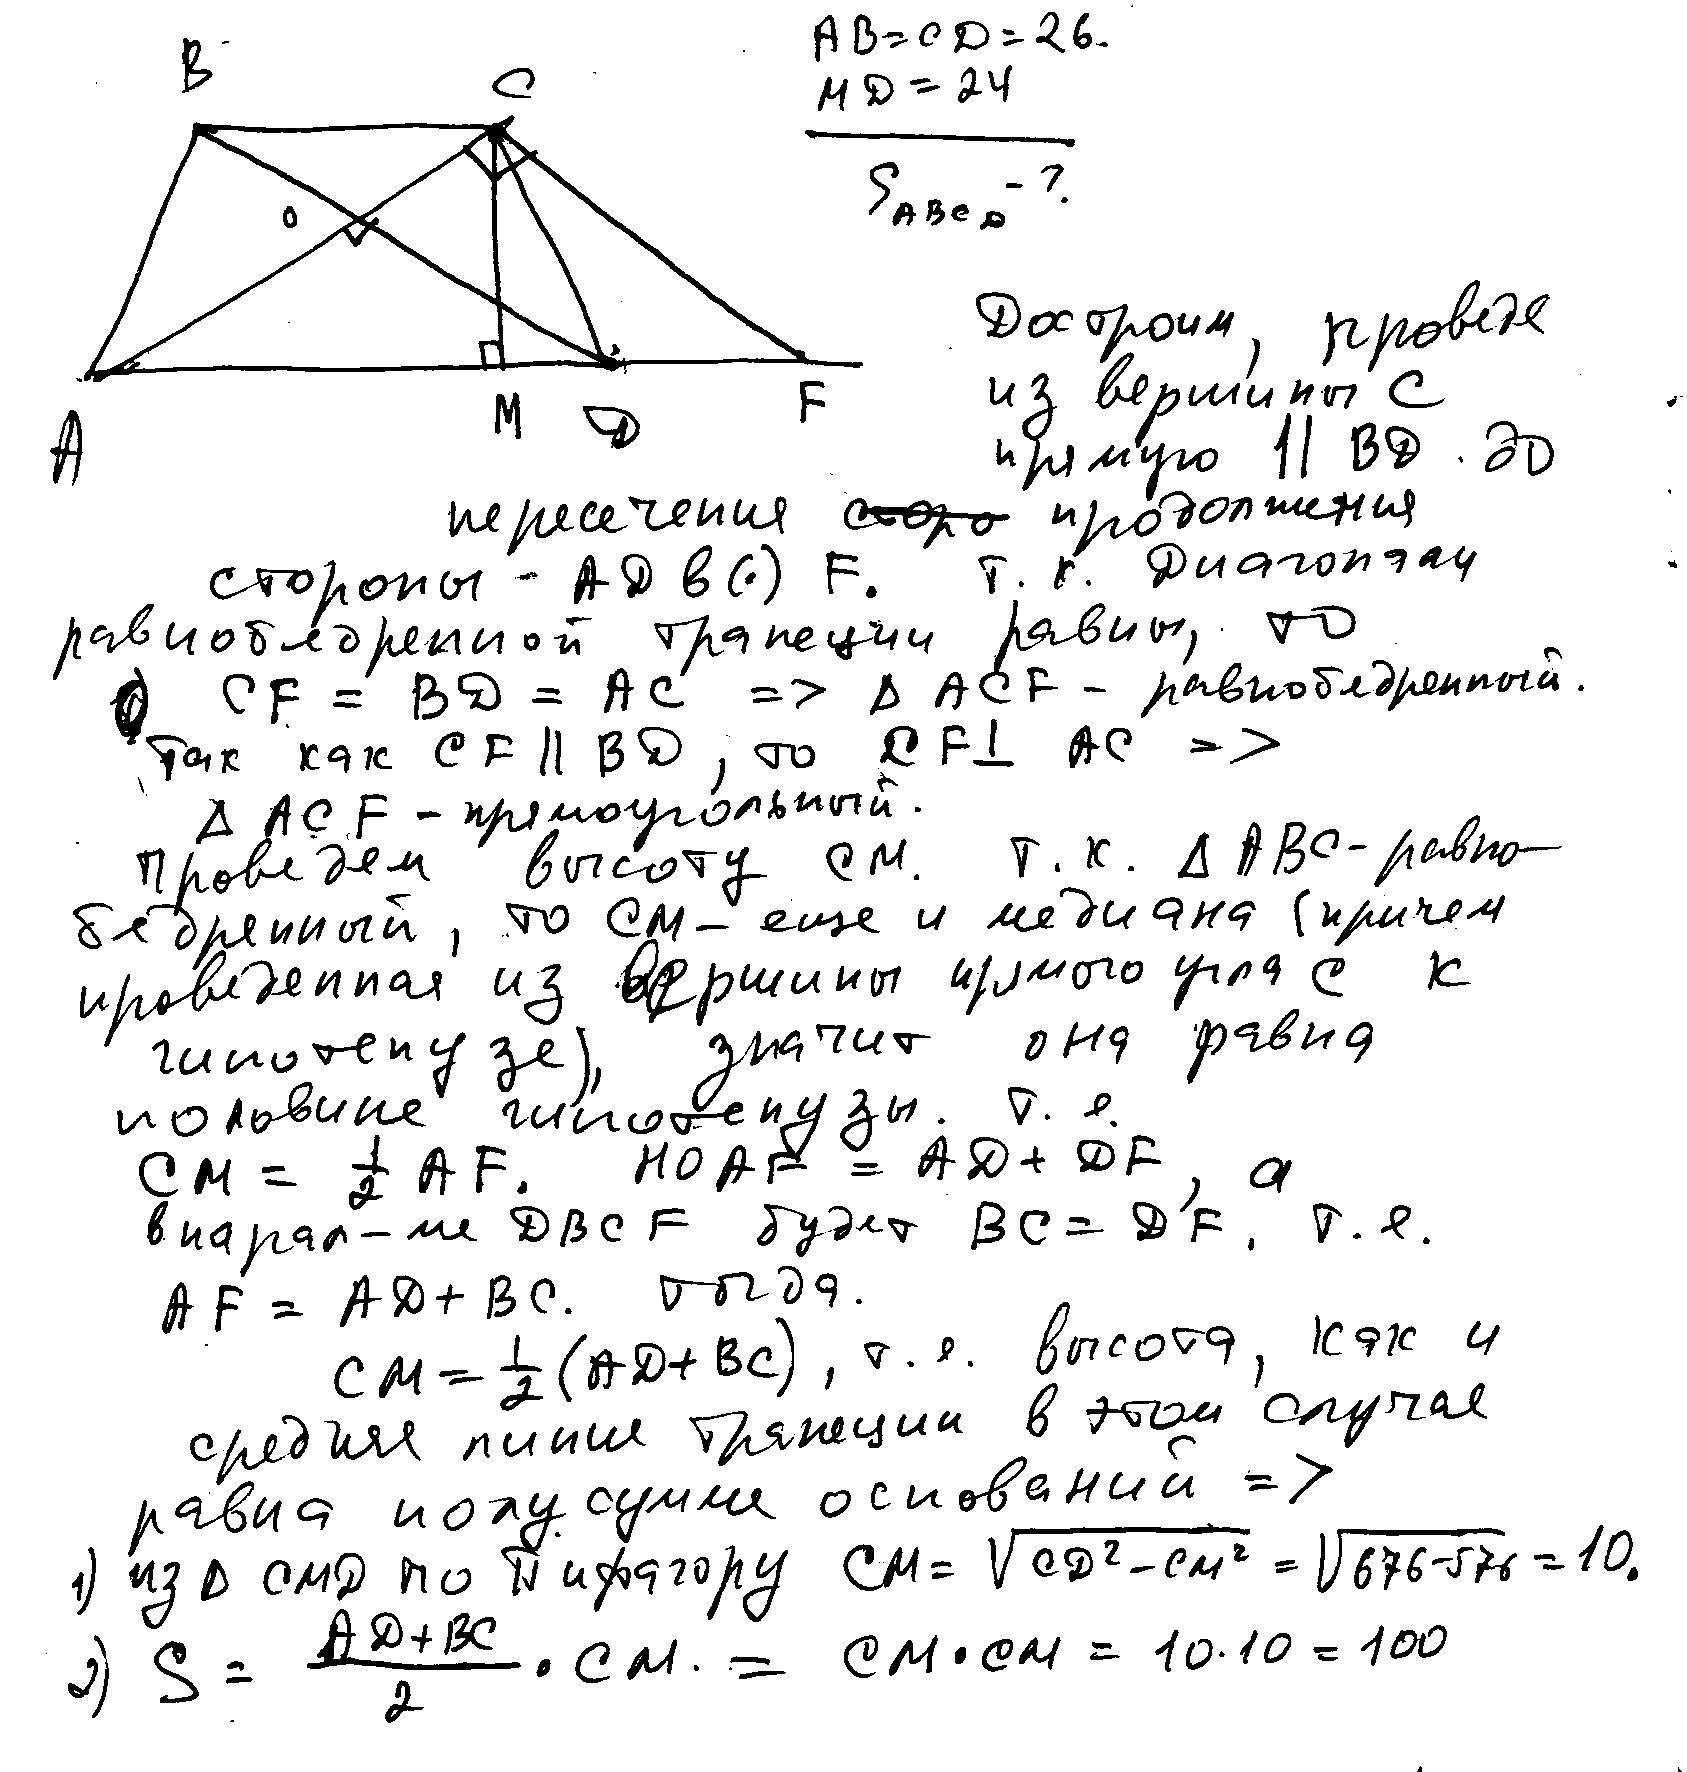 B
C
O
A
M
D
F
AB=CD=26.
MD=24
S ABCD -?
Достроим, проведя
из вершины C
прямую || BD до
пересечения сторо продолжения
стороны - AD в (•) F. т.к. Диагонали
равнобедренной трапеции равны, то
CF = BD = AC => Δ ACF - равнобедренный.
Так как CF || BD, то CF⊥ AC =>
Δ ACF - прямоугольный.
Проведем высоту CM. т.к. Δ ABC - равно-
бедренный, то CM - еще и медиана (причем
проведенная из вершины прямого угла C к
гипотенузе), значит она равна
половине гипотенузы. т.е.
CM = 1/2 AF. но AF = AD + DF, а
в парал-ме DBCF будет BC = DF, т.е.
AF = AD + BC. тогда.
CM = 1/2 (AD + BC), т.е. высота, как и
средняя линия трапеции в этом случае
равна полусумме оснований =>
1) из Δ CMD по Пифагору CM = √CD² - CM² = √676-576 = 10.
2) S = AD+BC/2 • CM. = CM•CM = 10·10 = 100